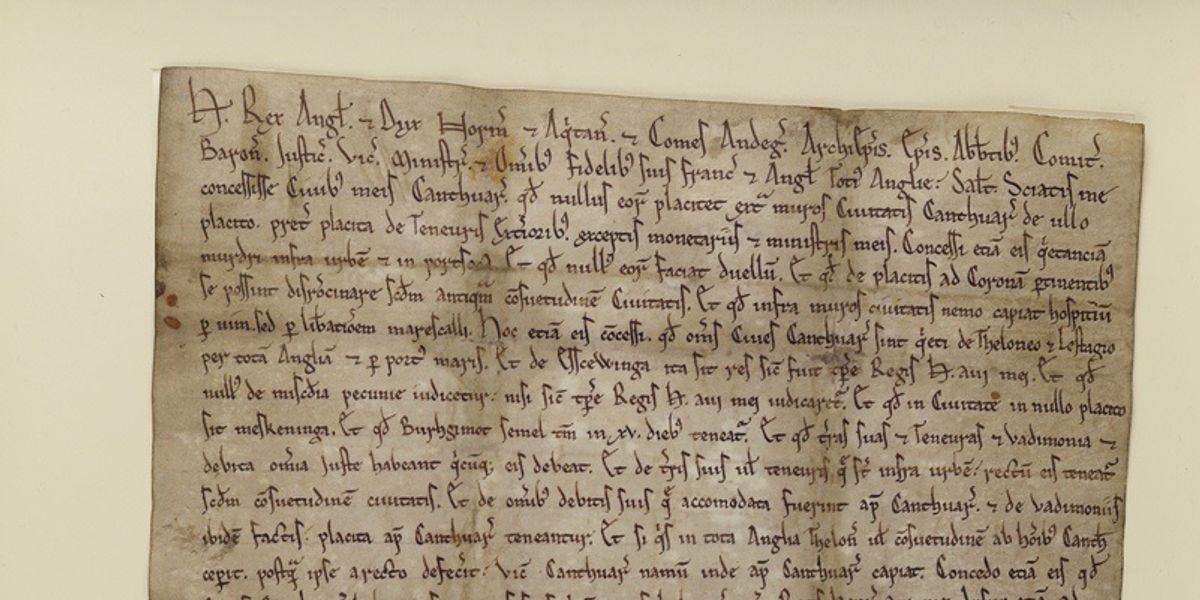 H. Rex Angł. ⁊ Dux Norm̄ ⁊ Aq̇tan̄. ⁊ Comes Andeg̃. Archiep̄is. Ep̄is. Abb̄tibꝰ. Comit̃.
Baron̄. Justic̃. Vic̃. Ministr̃. ⁊ Om̄ibꝰ fidelibꝰ suis Franc̃ ⁊ Angł Totiꝰ Anglie. Salt̃. Sciatis me
concessisse Ciuibꝰ meis Cantuar̃. qđ nullus eoꝝ placitet ext̃ muros Ciuitatis Cantuar̃ de ullo
placito. pret̃ placita de Teneuris Ext̃ioribꝰ. exceptis monetariis ⁊ ministris meis. Concessi etiā eis q̇etanciā
murdri infra urbē ⁊ in portsoca. Et qđ nullꝰ eoꝝ faciat duellū. Et qđ de placitis ad Coronā ꝑtinentibꝰ
se possint disr̃cinare scđm antiquā cōsuetudinē Ciuitatis. Et qđ infra muros ciuitatis nemo capiat hospitiū
ꝑ uim. sed ꝑ lib̃atiōem marescalli. Hoc etiā eis cōcessi. qđ om̄s Ciues Cantuar̃ sint q̇eti de Theloneo ⁊ Lestagio
per totā Angliā ⁊ ꝑ portꝰ maris. Et de Essewinga ita sit res sič fuit tp̄re Regis H. aui mei. Et qđ
nullꝰ de misc̃dia pecunie iudicetur. nisi sič tp̄re Regis H. aui mei iudicaret̃. Et qđ in Ciuitate in nullo placito
sit meskeninga. Et qđ Burhgimot semel tm̄ in .xv. diebꝰ teneat̃. Et qđ t̃ras suas ⁊ Teneuras ⁊ uadimonia ⁊
debita om̄ia Juste habeant q̇cūq; eis debeat. Et de t̃ris suis uł teneuris q̄ st̄ infra urbē. rectū eis teneat̃
scđm cōsuetudinē ciuitatis. Et de om̄ibꝰ debitis suis q̄ accomodata fuerint ap̄ Cantuar̃. ⁊ de uadimoniis
ibidē factis. placita ap̄ Cantuar̃ teneantur. Et si q̇s in tota Anglia Thelon̄ uł cōsuetudinē ab hōibꝰ Canth̄
cep̃it. postq̄ ipse a recto defec̃it. Vic̃ Cantuar̃ namū inde ap̄ Cantuar̃ capiat. Concedo etiā eis qđ